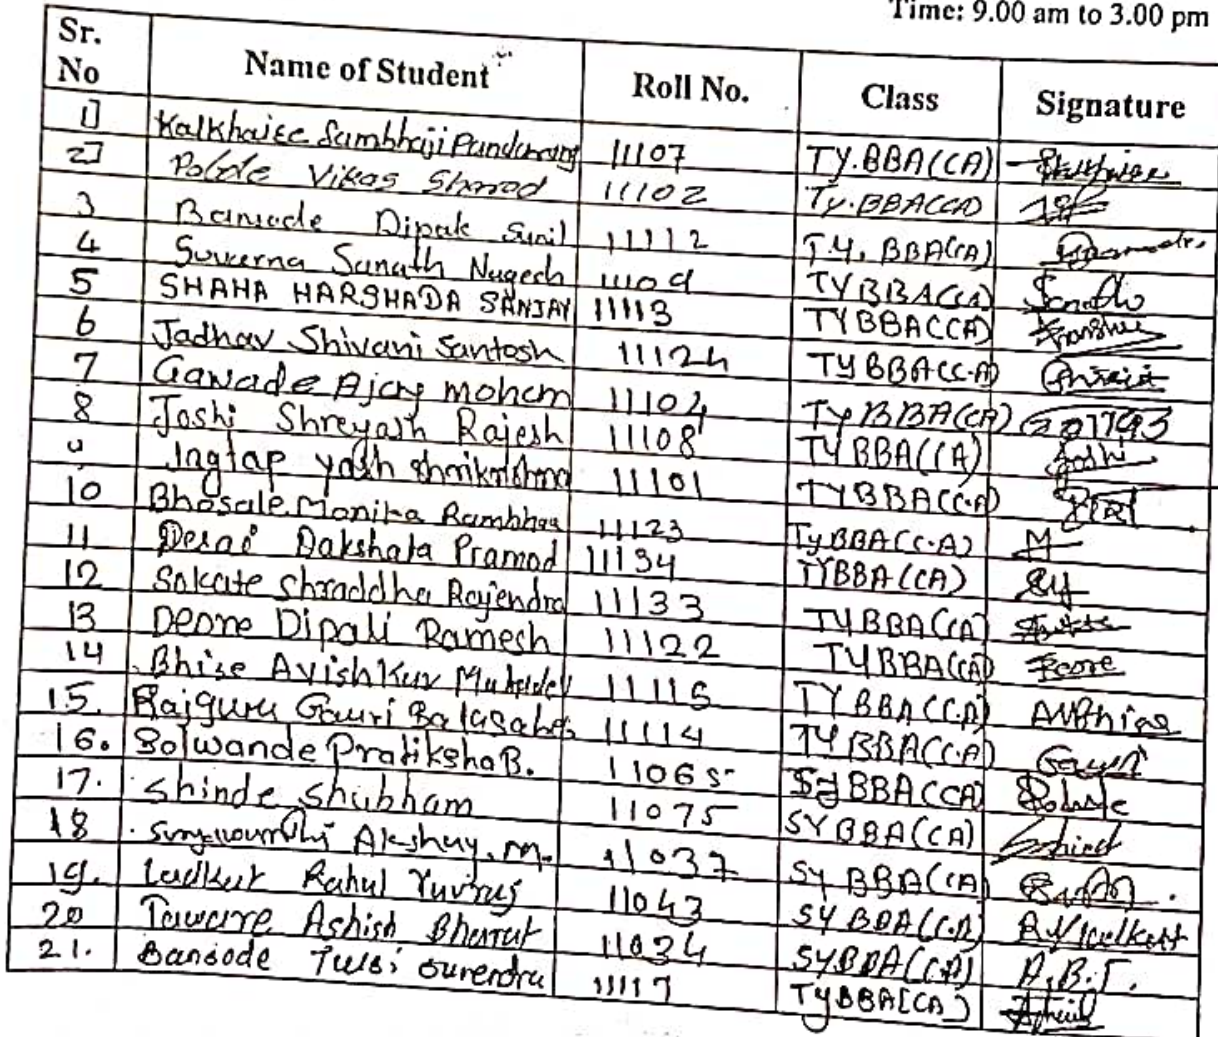 Time: 9.00 am to 3.00 pm
Sr. No Name of Student Roll No. Class Signature
1] Kalkhaire Sambhaji Pandurang 11107 TY.BBA(CA)
2] Pobde Vikas Sharad 11102 Ty.BBA(CA)
3 Bansode Dipak Sunil 11112 T.Y. BBA(CA)
4 Suverna Sanath Nagesh 11109 TYBBA(CA) Sanath
5 SHAHA HARSHADA SANJAY 11113 TYBBA(CA)
6 Jadhav Shivani Santosh 11124 TYBBA(C.A)
7 Gawade Ajay mohan 11104 TyBBA(CA)
8 Joshi Shreyash Rajesh 11108 TYBBA(CA) Joshi
9 Jagtap yash shrikrishna 11101 TYBBA(C.A)
10 Bhosale Monika Rambhau 11123 TyBBA(C.A) M
11 Desai Dakshata Pramod 11134 TYBBA(CA)
12 Sakate Shraddha Rajendra 11133 TYBBA(CA)
13 Deore Dipali Ramesh 11122 TYBBA(CA) Deore
14 Bhise Avishkar Mahadev 11115 TYBBA(C.A)
15. Rajguru Gauri Balasaheb 11114 TYBBA(C.A) Gauri
16. Solwande Pratiksha B. 11065 SyBBA(CA)
17. Shinde Shubham 11075 SYBBA(CA) Shinde
18 Suryawanshi Akshay. M. 11037 SyBBA(CA)
19. Ladkat Rahul Yuvraj 11043 SYBBA(C.A)
20 Taware Ashish Bharat 11034 SYBBA(CA) A.B.T.
21. Bansode Tulsi Surendra 11117 TyBBA(CA)